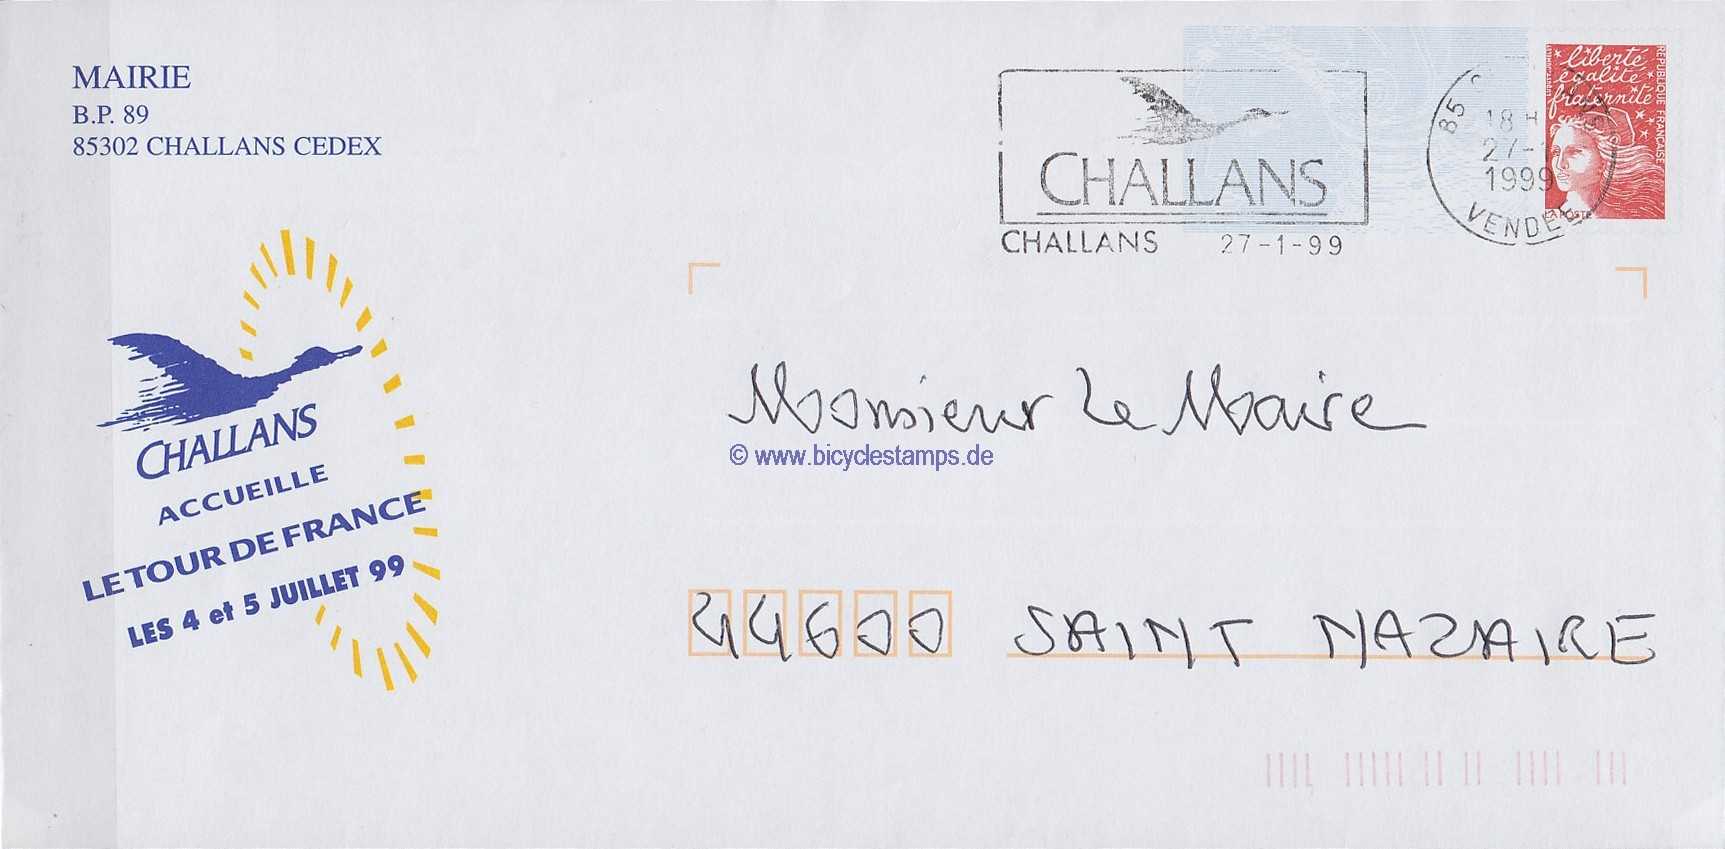 MAIRIE
B.P. 89
85302 CHALLANS CEDEX
CHALLANS
CHALLANS 27-1-99
85
18 H
27-
1999
VENDEE
liberté
égalité
fraternité
RÉPUBLIQUE FRANÇAISE
LA POSTE
CHALLANS
ACCUEILLE
LE TOUR DE FRANCE
LES 4 et 5 JUILLET 99
Monsieur Le Maire
© www.bicyclestamps.de
44600 SAINT NAZAIRE